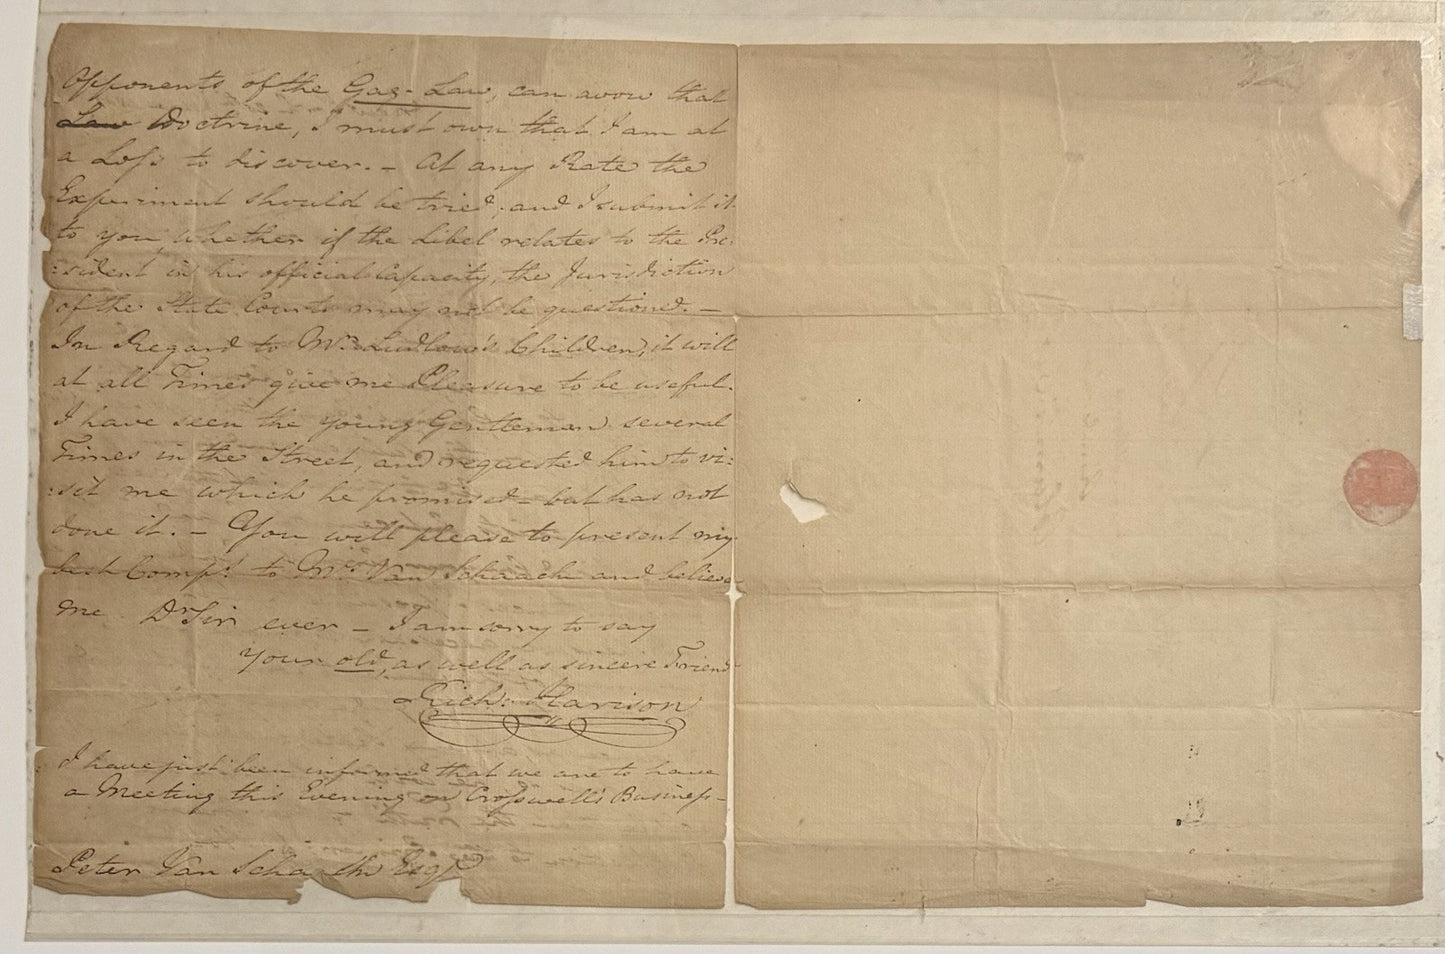 Opponents of the Gag-Law, can avow that
Law Doctrine, I must own that I am at
a Loss to discover. – At any Rate the
Experiment should be tried, and I submit it
to you whether if the Libel relates to the Pre:
:sident in his official Capacity, the Jurisdiction
of the State Courts may not be questioned. –
In Regard to Mrs Ludlow's Children, it will
at all Times give me Pleasure to be useful.
I have seen the young Gentleman several
Times in the Street, and requested him to vi:
:sit me which he promised – but has not
done it. – You will please to present my
best Compts to Mrs Van Schaack and believe
me Dr Sir ever – I am sorry to say
Your old, as well as sincere Friend
Rich: Harison
I have just been informed that we are to have
a Meeting this Evening on Croswell's Business –
Peter Van Scha ck Esqr